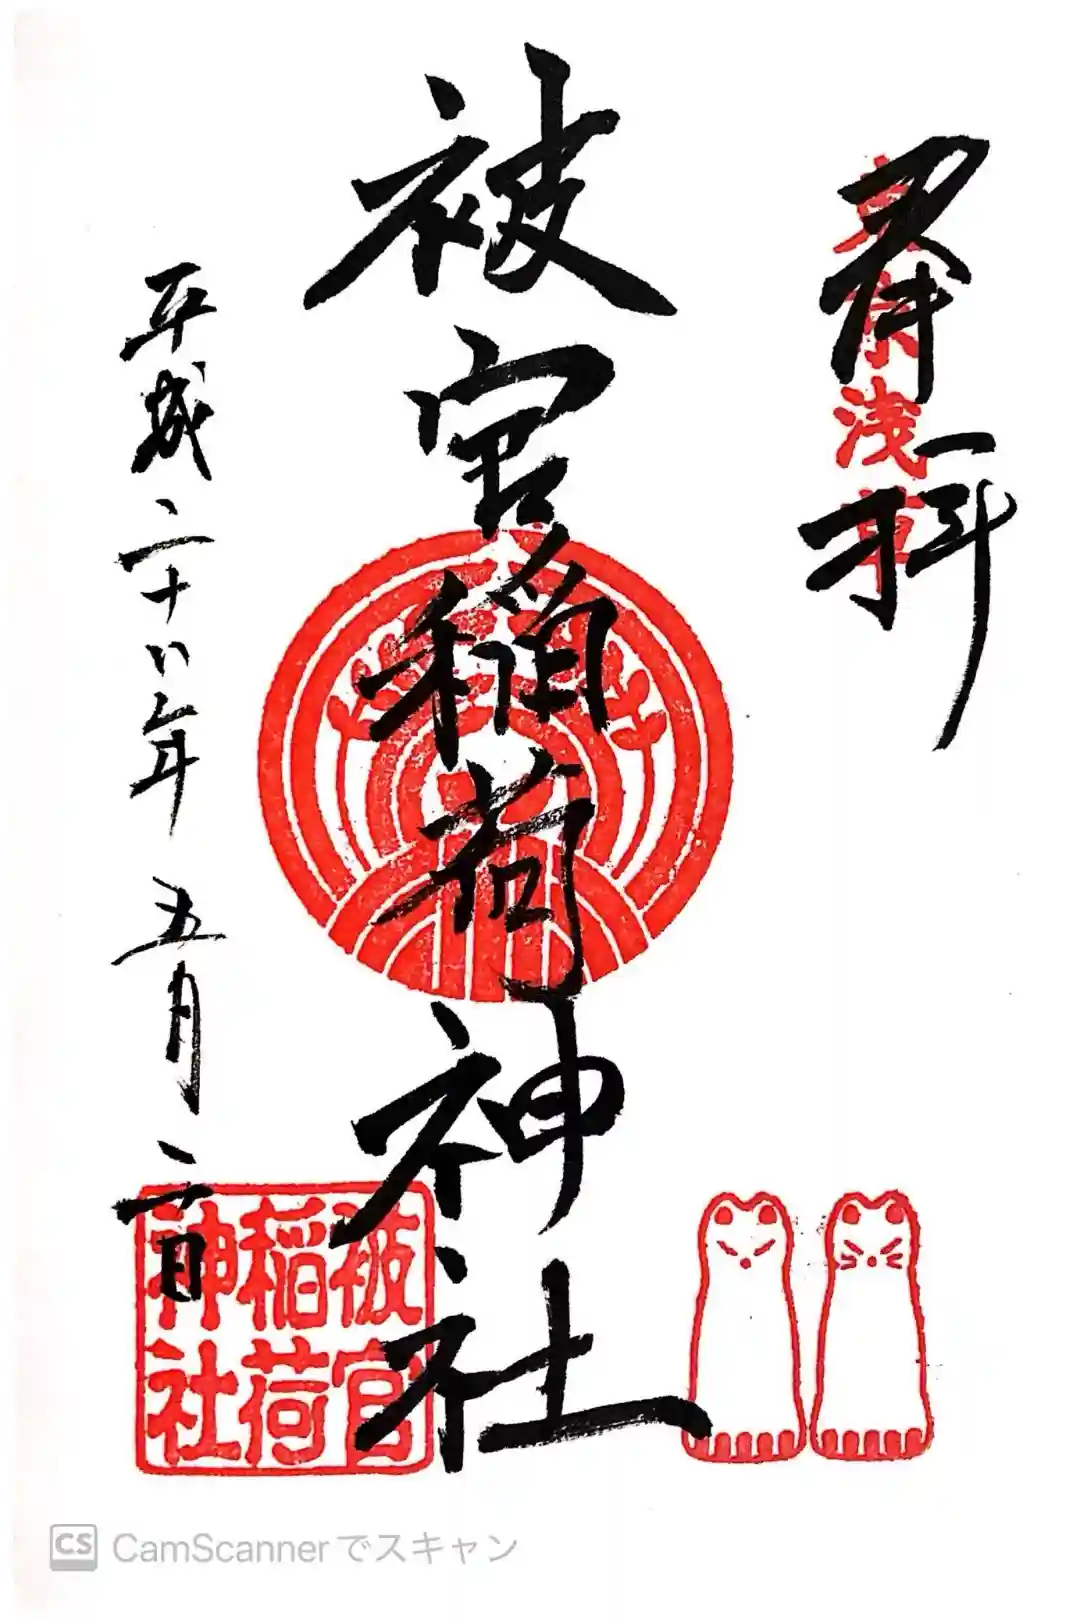 奉拝
東京浅草
被官稲荷神社
平成二十八年 五月二日
被官
稲荷
神社
CS CamScannerでスキャン